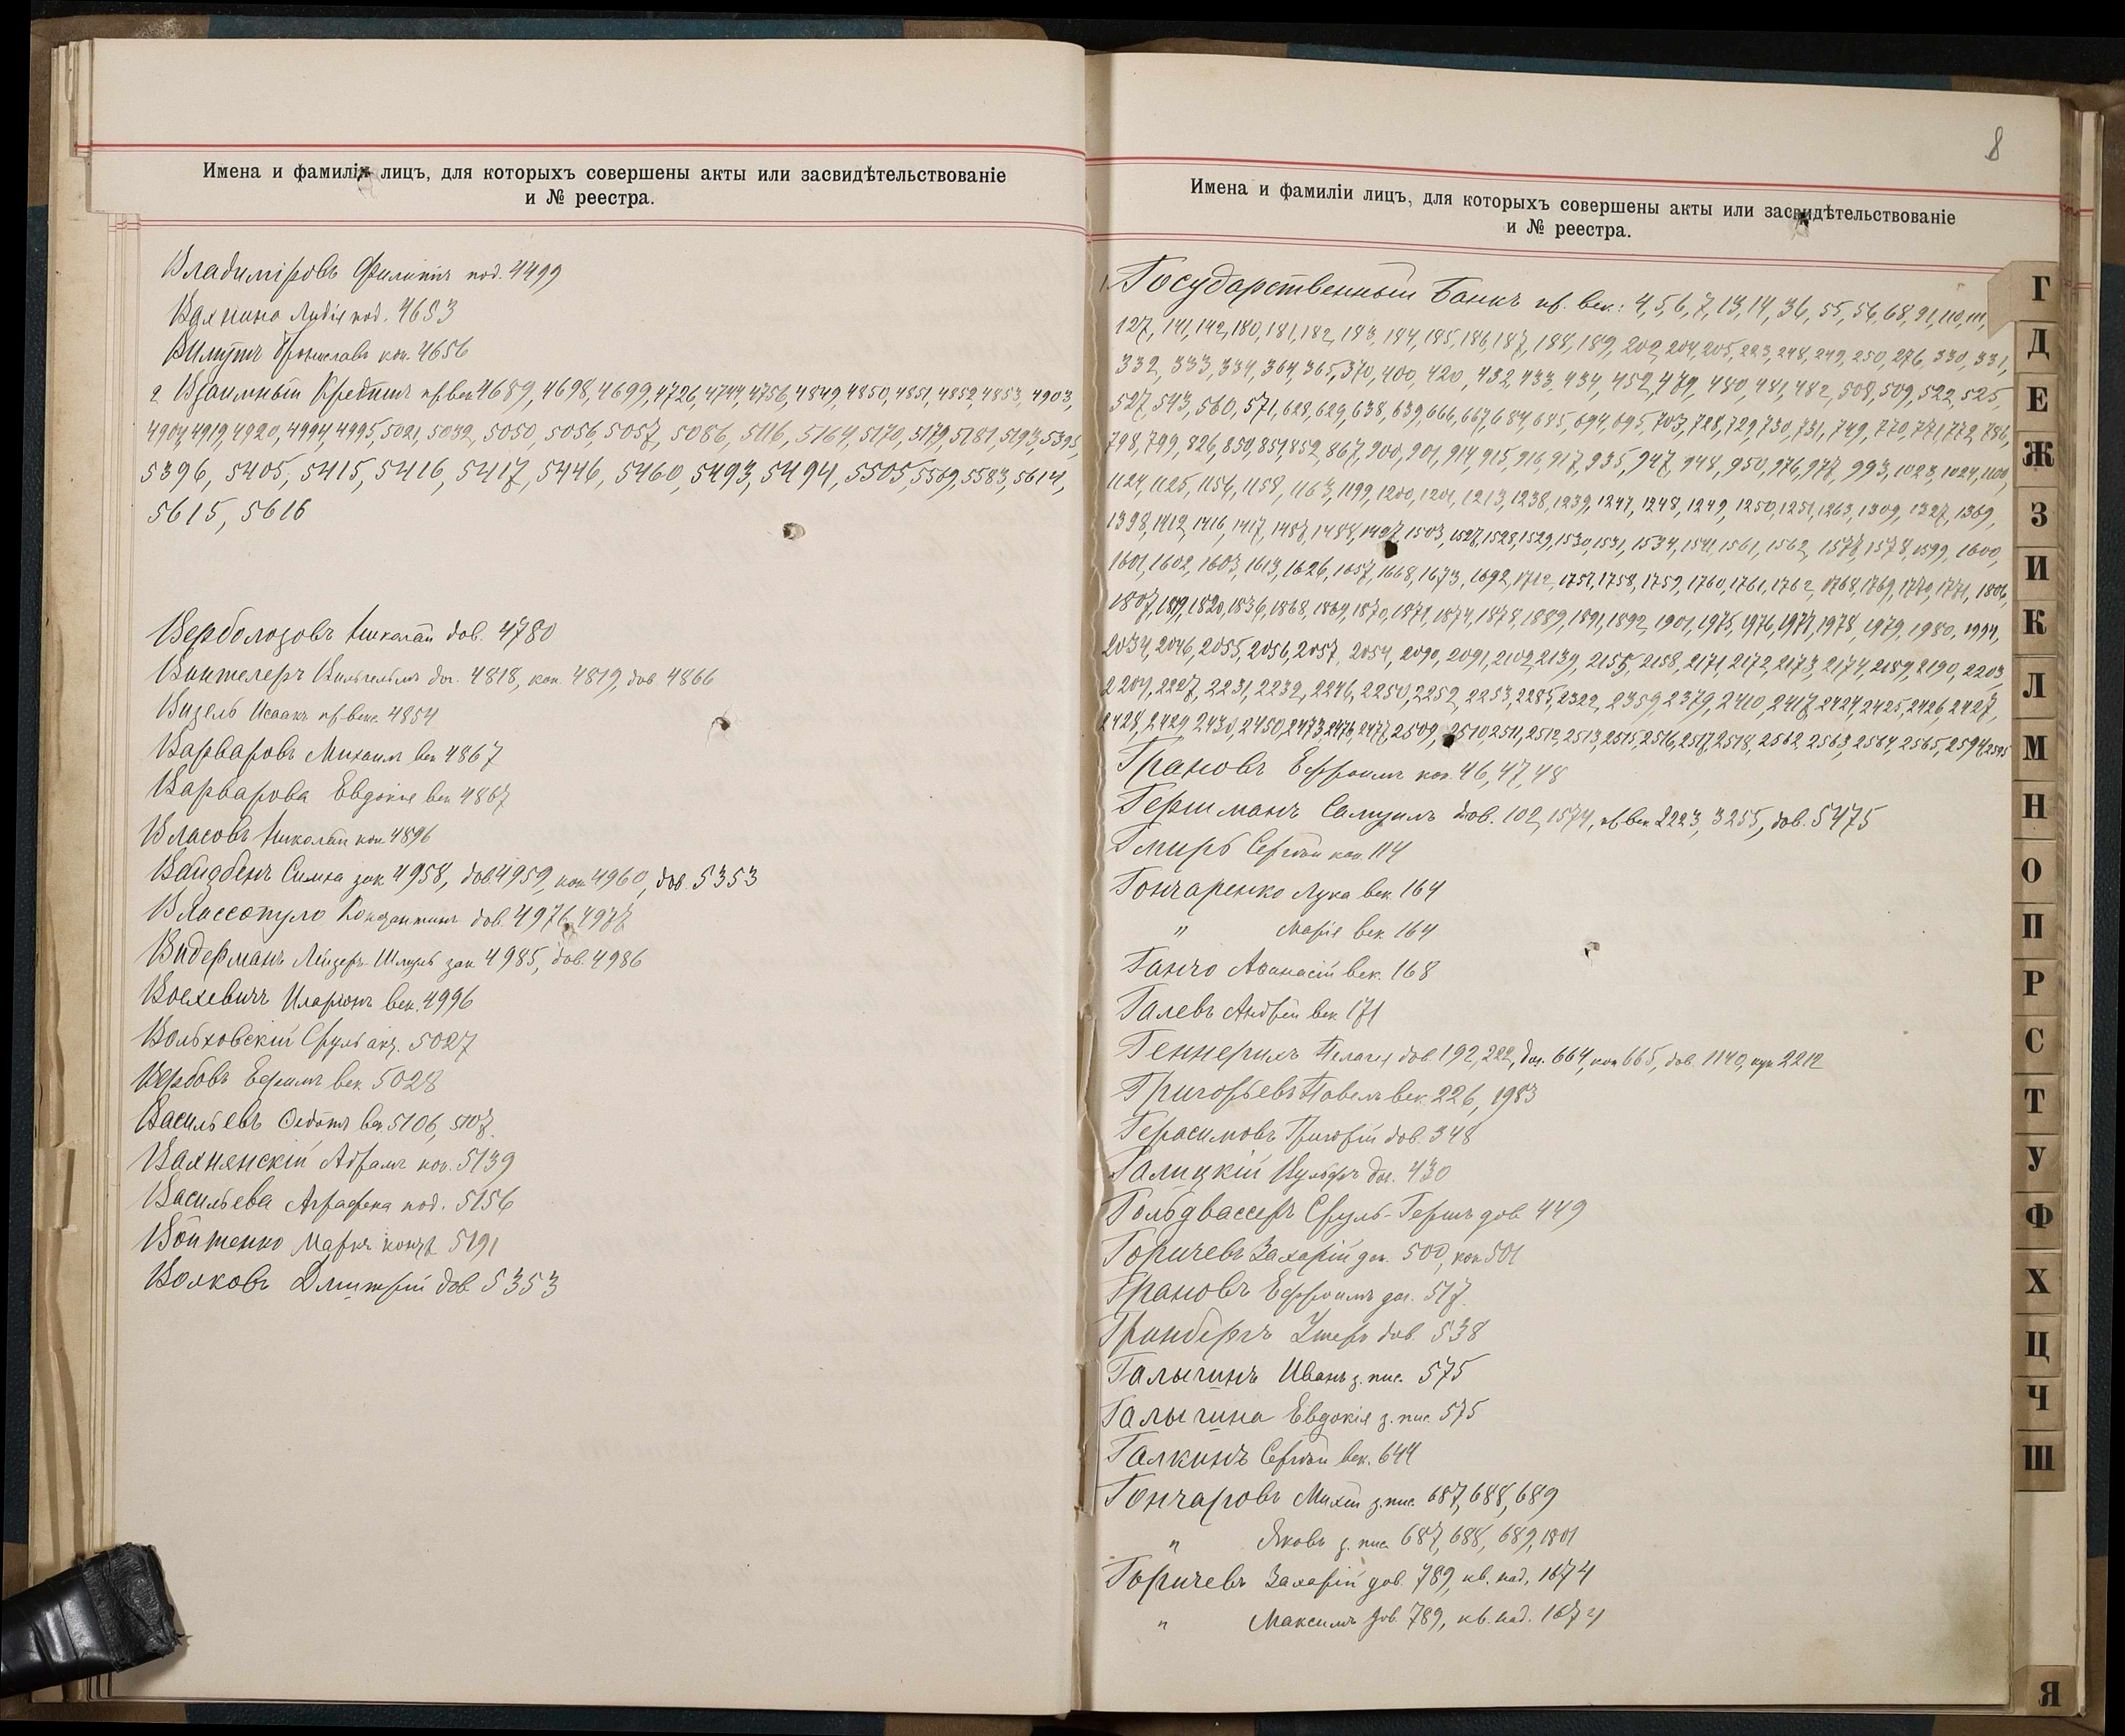 Имена и фамиліи лицъ, для которыхъ совершены акты или засвидѣтельствованіе
и № реестра.
Владиміровъ Филиппъ под. 4499
Вахнина Лидія под. 4653
Вилутъ Брониславъ коп. 4656
2 Взаимный Кредитъ пр. век. 4689, 4698, 4699, 4726, 4744, 4756, 4849, 4850, 4851, 4852, 4853, 4903,
4904, 4919, 4920, 4994, 4995, 5021, 5032, 5050, 5056, 5057, 5086, 5116, 5164, 5170, 5179, 5181, 5193, 5395,
5396, 5405, 5415, 5416, 5417, 5446, 5460, 5493, 5494, 5505, 5569, 5583, 5614,
5615, 5616
Верболозовъ Николай дов. 4780
Винтелеръ Вильгельмъ дог. 4818, коп. 4819, дов 4866
Визель Исаакъ пр. векс. 4854
Варваровъ Михаилъ век 4867
Варварова Евдокія век 4867
Власовъ Николай коп 4896
Вайдбенъ Симха зак 4958, дов. 4959, коп 4960, дов. 5353
Влассопуло Константинъ дов. 4976, 4977
Видерманъ Лейзеръ-Шмуль зак 4985, дов. 4986
Воехевичъ Иларіонъ век. 4996
Вольховскій Сруль акц. 5027
Вербовъ Ефимъ век 5028
Васильевъ Ѳедотъ век. 5106, 5107.
Вахнянскій Абрамъ коп. 5139
Васильева Аграфена под. 5156
Войтенко Маркъ 5191
Волковъ Дмитрій дов 5353
8
Имена и фамиліи лицъ, для которыхъ совершены акты или засвидѣтельствованіе
и № реестра.
1. Государственный Банкъ пр. век.: 4, 5, 6, 7, 13, 14, 36, 55, 56, 68, 91, 110, 111,
127, 141, 142, 180, 181, 182, 183, 184, 185, 186, 187, 188, 189, 202, 204, 205, 223, 248, 249, 250, 276, 330, 331,
332, 333, 334, 364, 365, 370, 400, 420, 432, 433, 434, 452, 479, 480, 481, 482, 508, 509, 522, 525,
527, 543, 560, 571, 628, 629, 638, 639, 666, 667, 684, 685, 694, 695, 703, 728, 729, 730, 731, 749, 770, 771, 772, 786,
798, 799, 826, 850, 851, 852, 867, 900, 901, 914, 915, 916, 917, 935, 947, 948, 950, 976, 977, 993, 1023, 1024, 1100,
1124, 1125, 1154, 1158, 1163, 1199, 1200, 1201, 1213, 1238, 1239, 1247, 1248, 1249, 1250, 1251, 1263, 1309, 1327, 1369,
1398, 1412, 1416, 1417, 1457, 1484, 1497, 1503, 1527, 1528, 1529, 1530, 1531, 1534, 1541, 1561, 1562, 1577, 1578, 1599, 1600,
1601, 1602, 1603, 1613, 1626, 1657, 1668, 1673, 1692, 1712, 1757, 1758, 1759, 1760, 1761, 1762, 1768, 1769, 1770, 1771, 1806,
1807, 1819, 1820, 1836, 1868, 1869, 1870, 1871, 1874, 1878, 1889, 1891, 1892, 1901, 1975, 1976, 1977, 1978, 1979, 1980, 1994,
2034, 2046, 2055, 2056, 2057, 2054, 2090, 2091, 2102, 2139, 2155, 2158, 2171, 2172, 2173, 2174, 2189, 2190, 2203,
2204, 2227, 2231, 2232, 2246, 2250, 2252, 2253, 2285, 2322, 2359, 2379, 2410, 2417, 2424, 2425, 2426, 2427,
2428, 2429, 2430, 2450, 2473, 2476, 2477, 2509, 2510, 2511, 2512, 2513, 2515, 2516, 2517, 2518, 2562, 2563, 2564, 2565, 2594, 2595
Грановъ Ефроимъ коп. 46, 47, 48
Гершманъ Самуилъ дов. 102, 1574, пр. век 2223, 3255, дов. 5475
Гмиръ Сергѣй коп. 114
Гончаренко Лука век. 164
" Марія век. 164
Ганчо Аѳанасій век. 168
Галевъ Андрей век 171
Геннерихъ Пелагея дов. 192, 222, дог. 664, коп 665, дов. 1140, куп 2212
Григорьевъ Павелъ век. 226, 1983
Герасимовъ Григорій дов. 348
Галицкій Вульфъ дог. 430
Гольдвассеръ Сруль-Гершъ дов 449
Горичевъ Захарій дог. 500, коп 501
Грановъ Ефроимъ дог. 517.
Гринбергъ Ушеръ дов. 538
Галыгинъ Иванъ з. пис. 575
Галыгина Евдокія з. пис. 575
Галкинъ Сергѣй век. 644
Гончаровъ з. пис. 687, 688, 689
" Яковъ з. пис. 687, 688, 689, 1801
Горичевъ Захарій дов. 789, кв. над. 1674
" Максимъ дов. 789, кв. над. 1674
Г
Д
Е
Ж
З
И
К
Л
М
Н
О
П
Р
С
Т
У
Ф
Х
Ц
Ч
Ш
Я